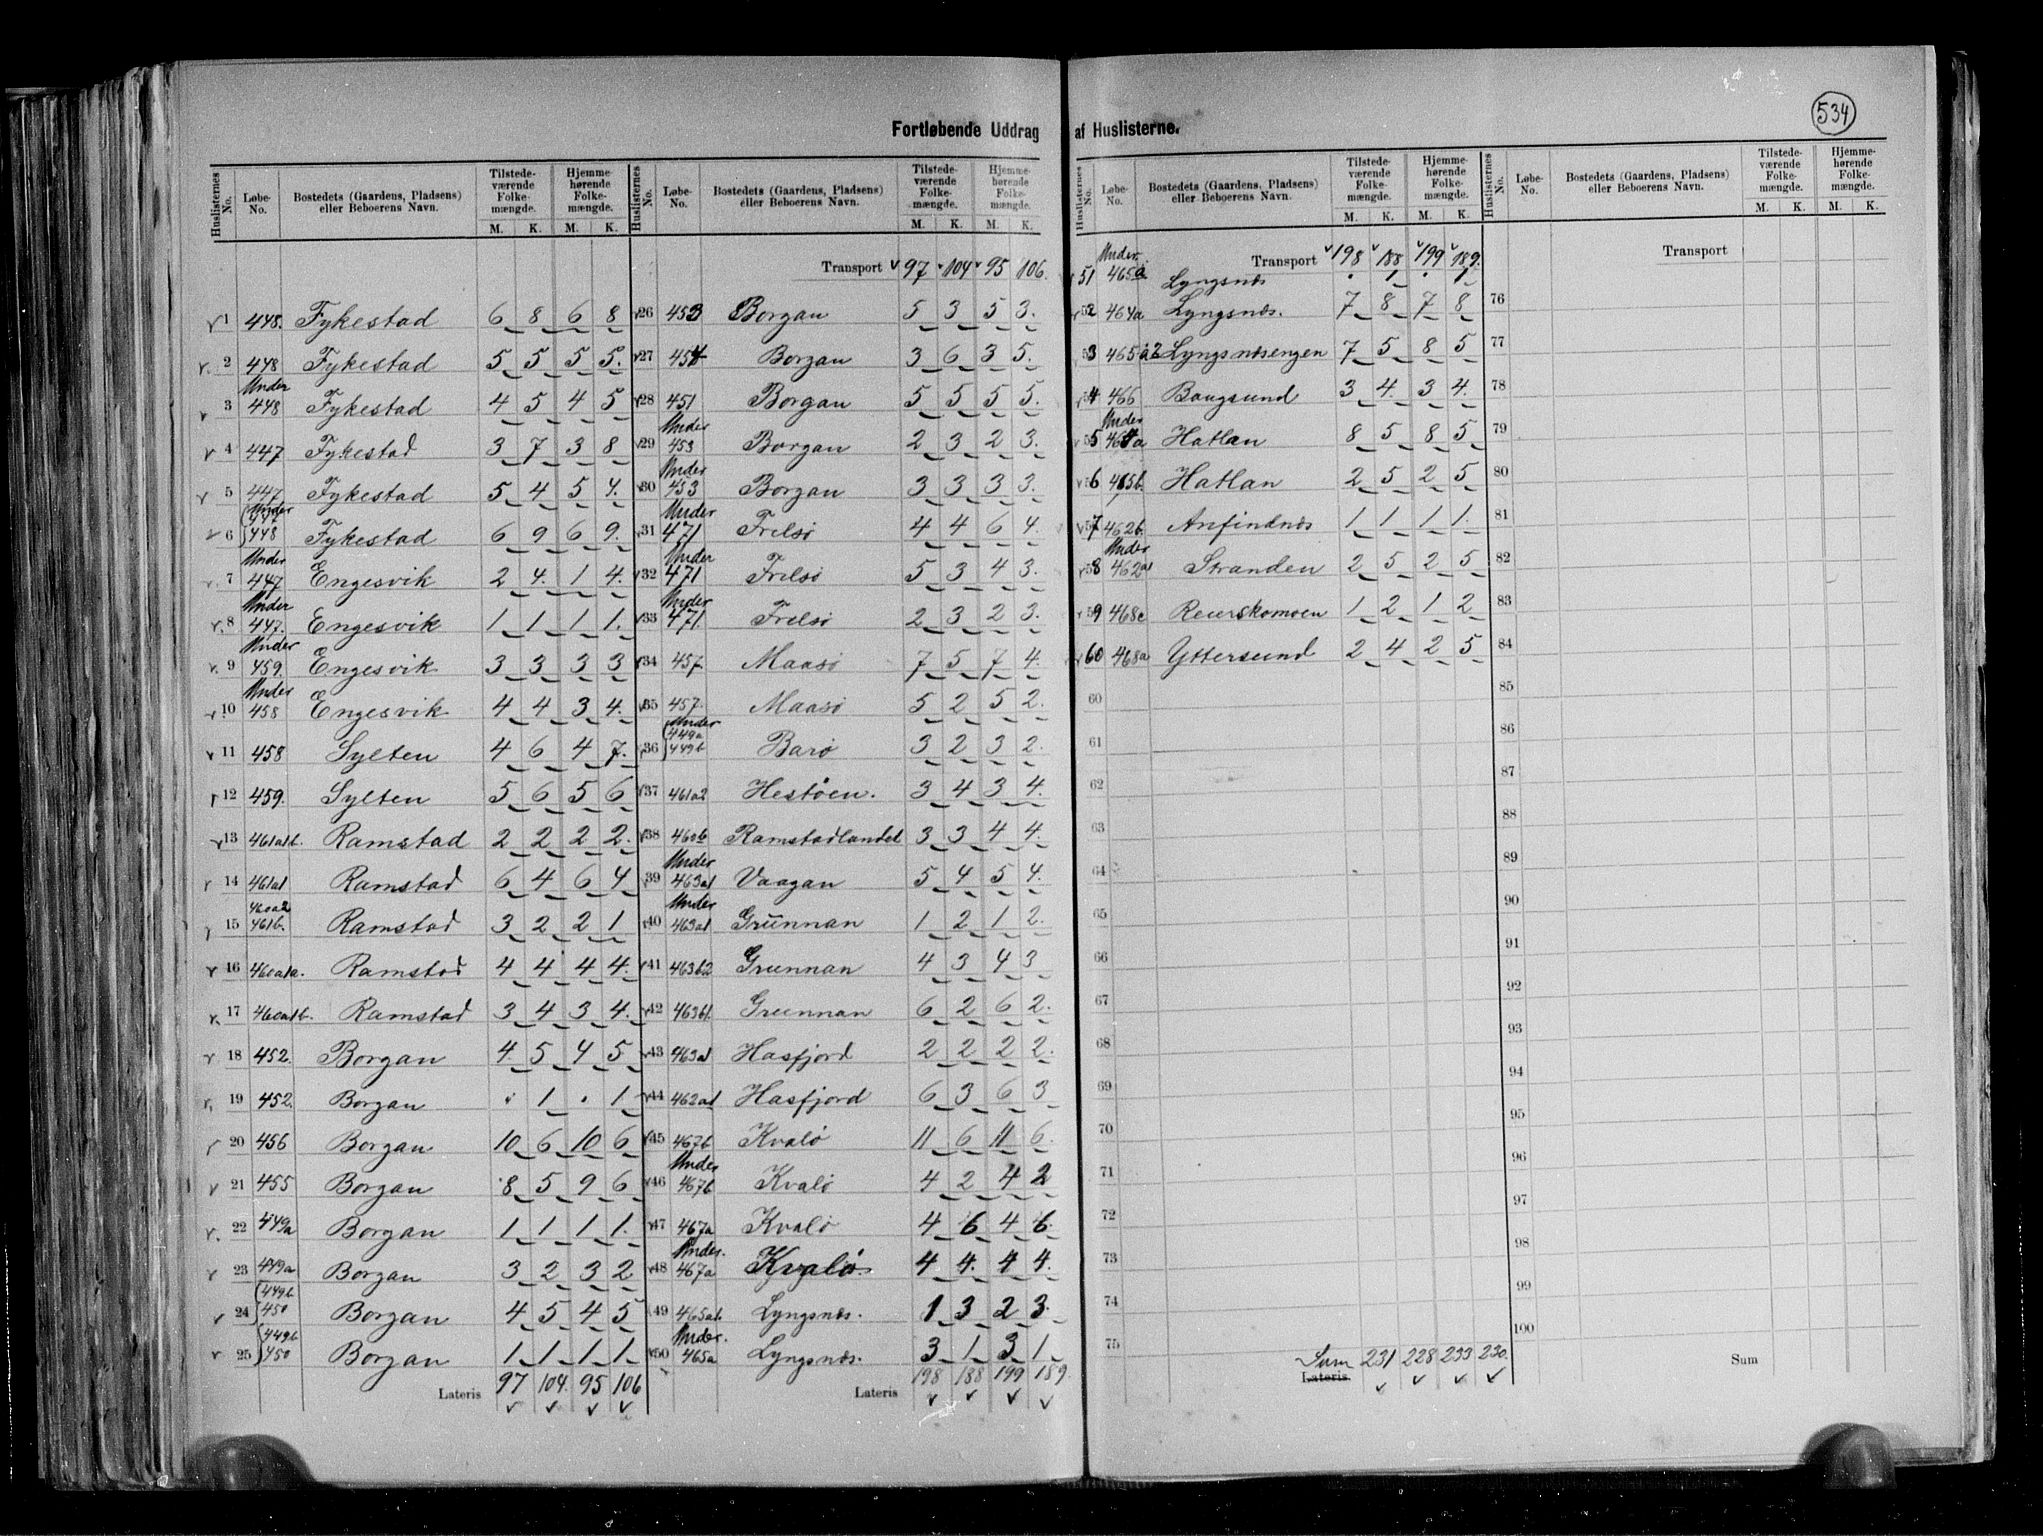 534
Fortløbende Uddrag af Huslisterne.
Huslisternes No. Løbe-No. Bostedets (Gaardens, Pladsens) eller Beboerens Navn. Tilstedeværende Folkemængde. M. K. Hjemmehørende Folkemængde. M. K.
1 448. Fykestad 6 8 6 8
2 448 Fykestad 5 5 5 5.
3 Under 448 Fykestad 4 5 4 5
4 447 Fykestad 3 7 3 8
5 447 Fykestad 5 4 5 4.
6 Under 447 448 Fykestad 6 9 6 9.
7 Under 447 Engesvik 2 4. 1 4.
8 Under 447. Engesvik 1 1 1 1.
9 Under 459. Engesvik 3 3 3 3
10 Under 458 Engesvik 4 4 3 4.
11 458 Sylten 4 6 4 7.
12 459. Sylten 5 6 5 6
13 461a1b. Ramstad 2 2 2 2.
14 461a1 Ramstad 6 4 6 4
15 460a2 461b. Ramstad 3 2 2 1
16 460a1a. Ramstad 4 4 4 4.
17 460a1b. Ramstad 3 4 3 4.
18 452. Borgan 4. 5 4 5
19 452. Borgan . 1 . 1
20 456 Borgan 10 6 10 6
21 455 Borgan 8 5 9 6
22 449a Borgan 1 1 1 1.
23 449a Borgan 3 2 3 2
24 449b 450 Borgan 4 5 4 5
25 449b 450 Borgan 1 1 1 1.
Lateris 97 104. 95 106
Huslisternes No. Løbe-No. Bostedets (Gaardens, Pladsens) eller Beboerens Navn. Tilstedeværende Folkemængde. M. K. Hjemmehørende Folkemængde. M. K.
Transport 97 104 95 106.
26 453 Borgan 5 3 5 3.
27 454 Borgan 3 6 3 5.
28 451 Borgan 5 5 5 5.
29 Under 453 Borgan 2 3 2 3.
30 Under 453 Borgan 3 3 3 3.
31 Under 471 Frelsø 4 4 6 4.
32 Under 471 Frelsø 5 3 4 3.
33 Under 471 Frelsø 2 3 2 3.
34 457. Maasø 7 5 7 4.
35 457. Maasø 5 2 5 2.
36 Under 449a 449b Barø 3 2 3 2.
37 461a2 Hestøen. 3 4 3 4.
38 460b Ramstadlandet 3 3 4 4.
39 Under 463a1 Vaagan 5 4 5 4.
40 Under 463a1 Grunnan 1 2 1 2.
41 463b2 Grunnan 4 3 4 3
42 463b1. Grunnan 6 2 6 2.
43 463a1 Hasfjord 2 2 2 2.
44 462a1 Hasfjord 6 3 6 3
45 467b Kvalø 11 6 11 6.
46 Under 467b Kvalø 4 2 4 2
47 467a Kvalø 4 6 4 6.
48 Under. 467a Kvalø 4 4. 4 4.
49 465ab Lyngsnæs. 1 3 2 3.
50 Under. 465a Lyngsnæs. 3 1 3 1
Lateris 198 188 199 189.
Huslisternes No. Løbe-No. Bostedets (Gaardens, Pladsens) eller Beboerens Navn. Tilstedeværende Folkemængde. M. K. Hjemmehørende Folkemængde. M. K.
Transport 198 188 199 189.
51 Under. 465a Lyngsnæs . 1 . 1
52 464a Lyngsnæs. 7 8 7 8
53 465a2 Lyngsnæsengen 7 5 8 5
54 466 Baugsund 3 4. 3 4.
55 Under 464a Hatlan 8 5 8 5
56 465b. Hatlan 2 5 2 5
57 462b. Anfindnæs 1 1 1 1.
58 Under 462a1 Stranden 2 5 2 5
59 468c Reierskomoen 1 2 1 2
60 468a Yttersund 2 4 2 5
60
61
62
63
64
65
66
67
68
69
70
71
72
73
74
75
Sum Lateris 231 228 233 230.
Huslisternes No. Løbe-No. Bostedets (Gaardens, Pladsens) eller Beboerens Navn. Tilstedeværende Folkemængde. M. K. Hjemmehørende Folkemængde. M. K.
Transport
76
77
78
79
80
81
82
83
84
85
86
87
88
89
90
91
92
93
94
95
96
97
98
99
100
Sum